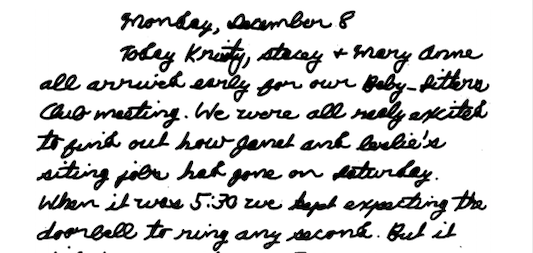 Monday, December 8
Today Kristy, Stacey + Mary Anne
all arrived early for our Baby-sitters
Club meeting. We were all realy excited
to find out how Janet and Leslie's
siting jobs had gone on Saturday.
When it was 5:30 we kept expecting the
doorbell to ring any second. But it